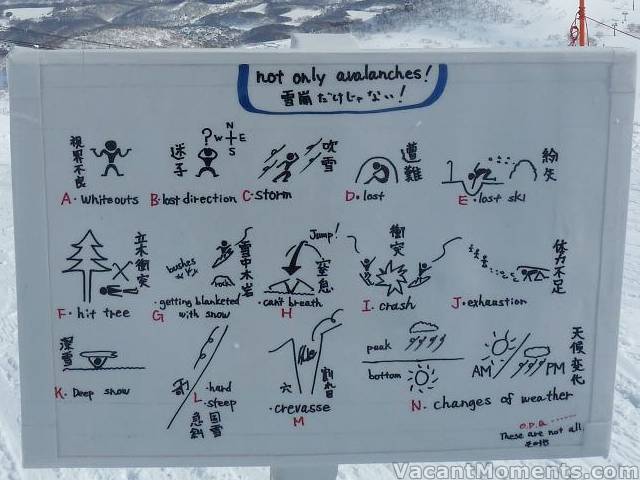 not only avalanches!
雪崩だけじゃない!
視界不良
A. Whiteouts
迷子
? N W E S
B. lost direction
吹雪
C. storm
遭難
D. lost
紛失
E. lost ski
立木衝突
F. hit tree
雪中木岩
bushes
rock
G
. getting blanketed
with snow
Jump!
窒息
. can't breath
H
衝突
I. crash
体力不足
J. exhaustion
深雪
K. Deep snow
L. hard
. steep
急斜
固雪
穴
割れ目
. crevasse
M
peak
bottom
AM PM
天候変化
N. changes of weather
O.P.Q.......
These are not all.
その他
VacantMoments.com